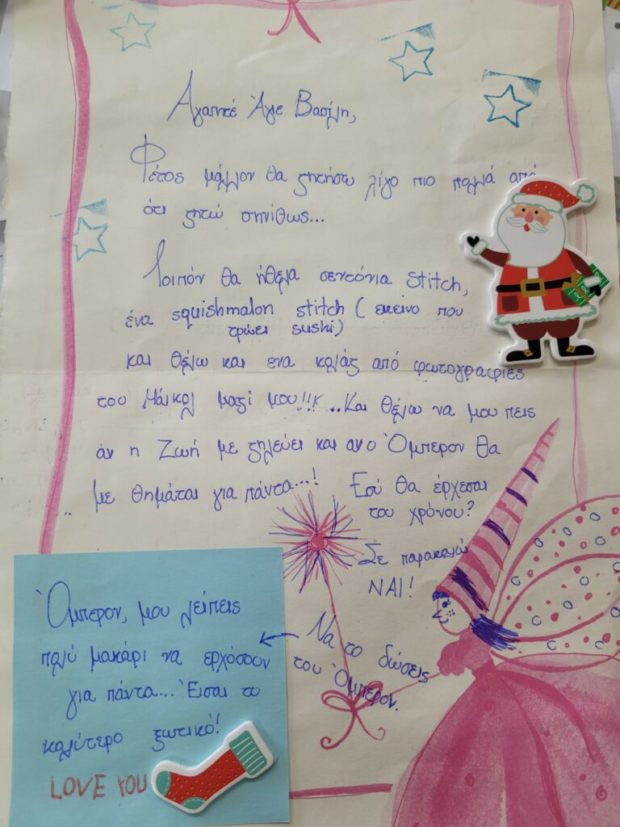 Αγαπητέ Άγιε Βασίλη,
Φέτος μάλλον θα ζητήσω λίγο πιο πολλά από
ότι ζητώ συνήθως...
Λοιπόν θα ήθελα σεντόνια stitch,
ένα squishmalon stitch ( εκείνο που
τρώει sushi)
και θέλω και ένα κολάζ από φωτογραφίες
του Μάικολ μαζί μου!!! ... Και θέλω να μου πεις
άν η Ζωή με ζηλεύει και αν ο Όμπερον θα
με θημάται για πάντα...!
Εσύ θα έρχεσαι
του χρόνου?
Σε παρακαλώ
ΝΑΙ!
Να το δώσεις
του Όμπερον.
Όμπερον, μου λείπεις
πολύ μακάρι να ερχόσουν
για πάντα.... Είσαι το
καλύτερο ξωτικό!
LOVE YOU